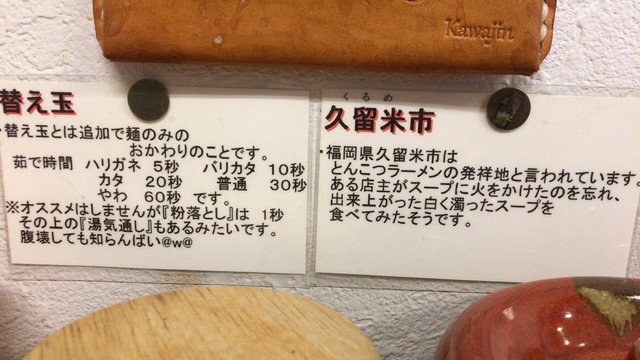 Kawajin
替え玉
・替え玉とは追加で麺のみの
おかわりのことです。
茹で時間 ハリガネ 5秒 バリカタ 10秒
カタ 20秒 普通 30秒
やわ 60秒 です。
※オススメはしませんが『粉落とし』は 1秒
その上の『湯気通し』もあるみたいです。
腹壊しても知らんばい@w@
くるめ
久留米市
・福岡県久留米市は
とんこつラーメンの発祥地と言われています。
ある店主がスープに火をかけたのを忘れ、
出来上がった白く濁ったスープを
食べてみたそうです。